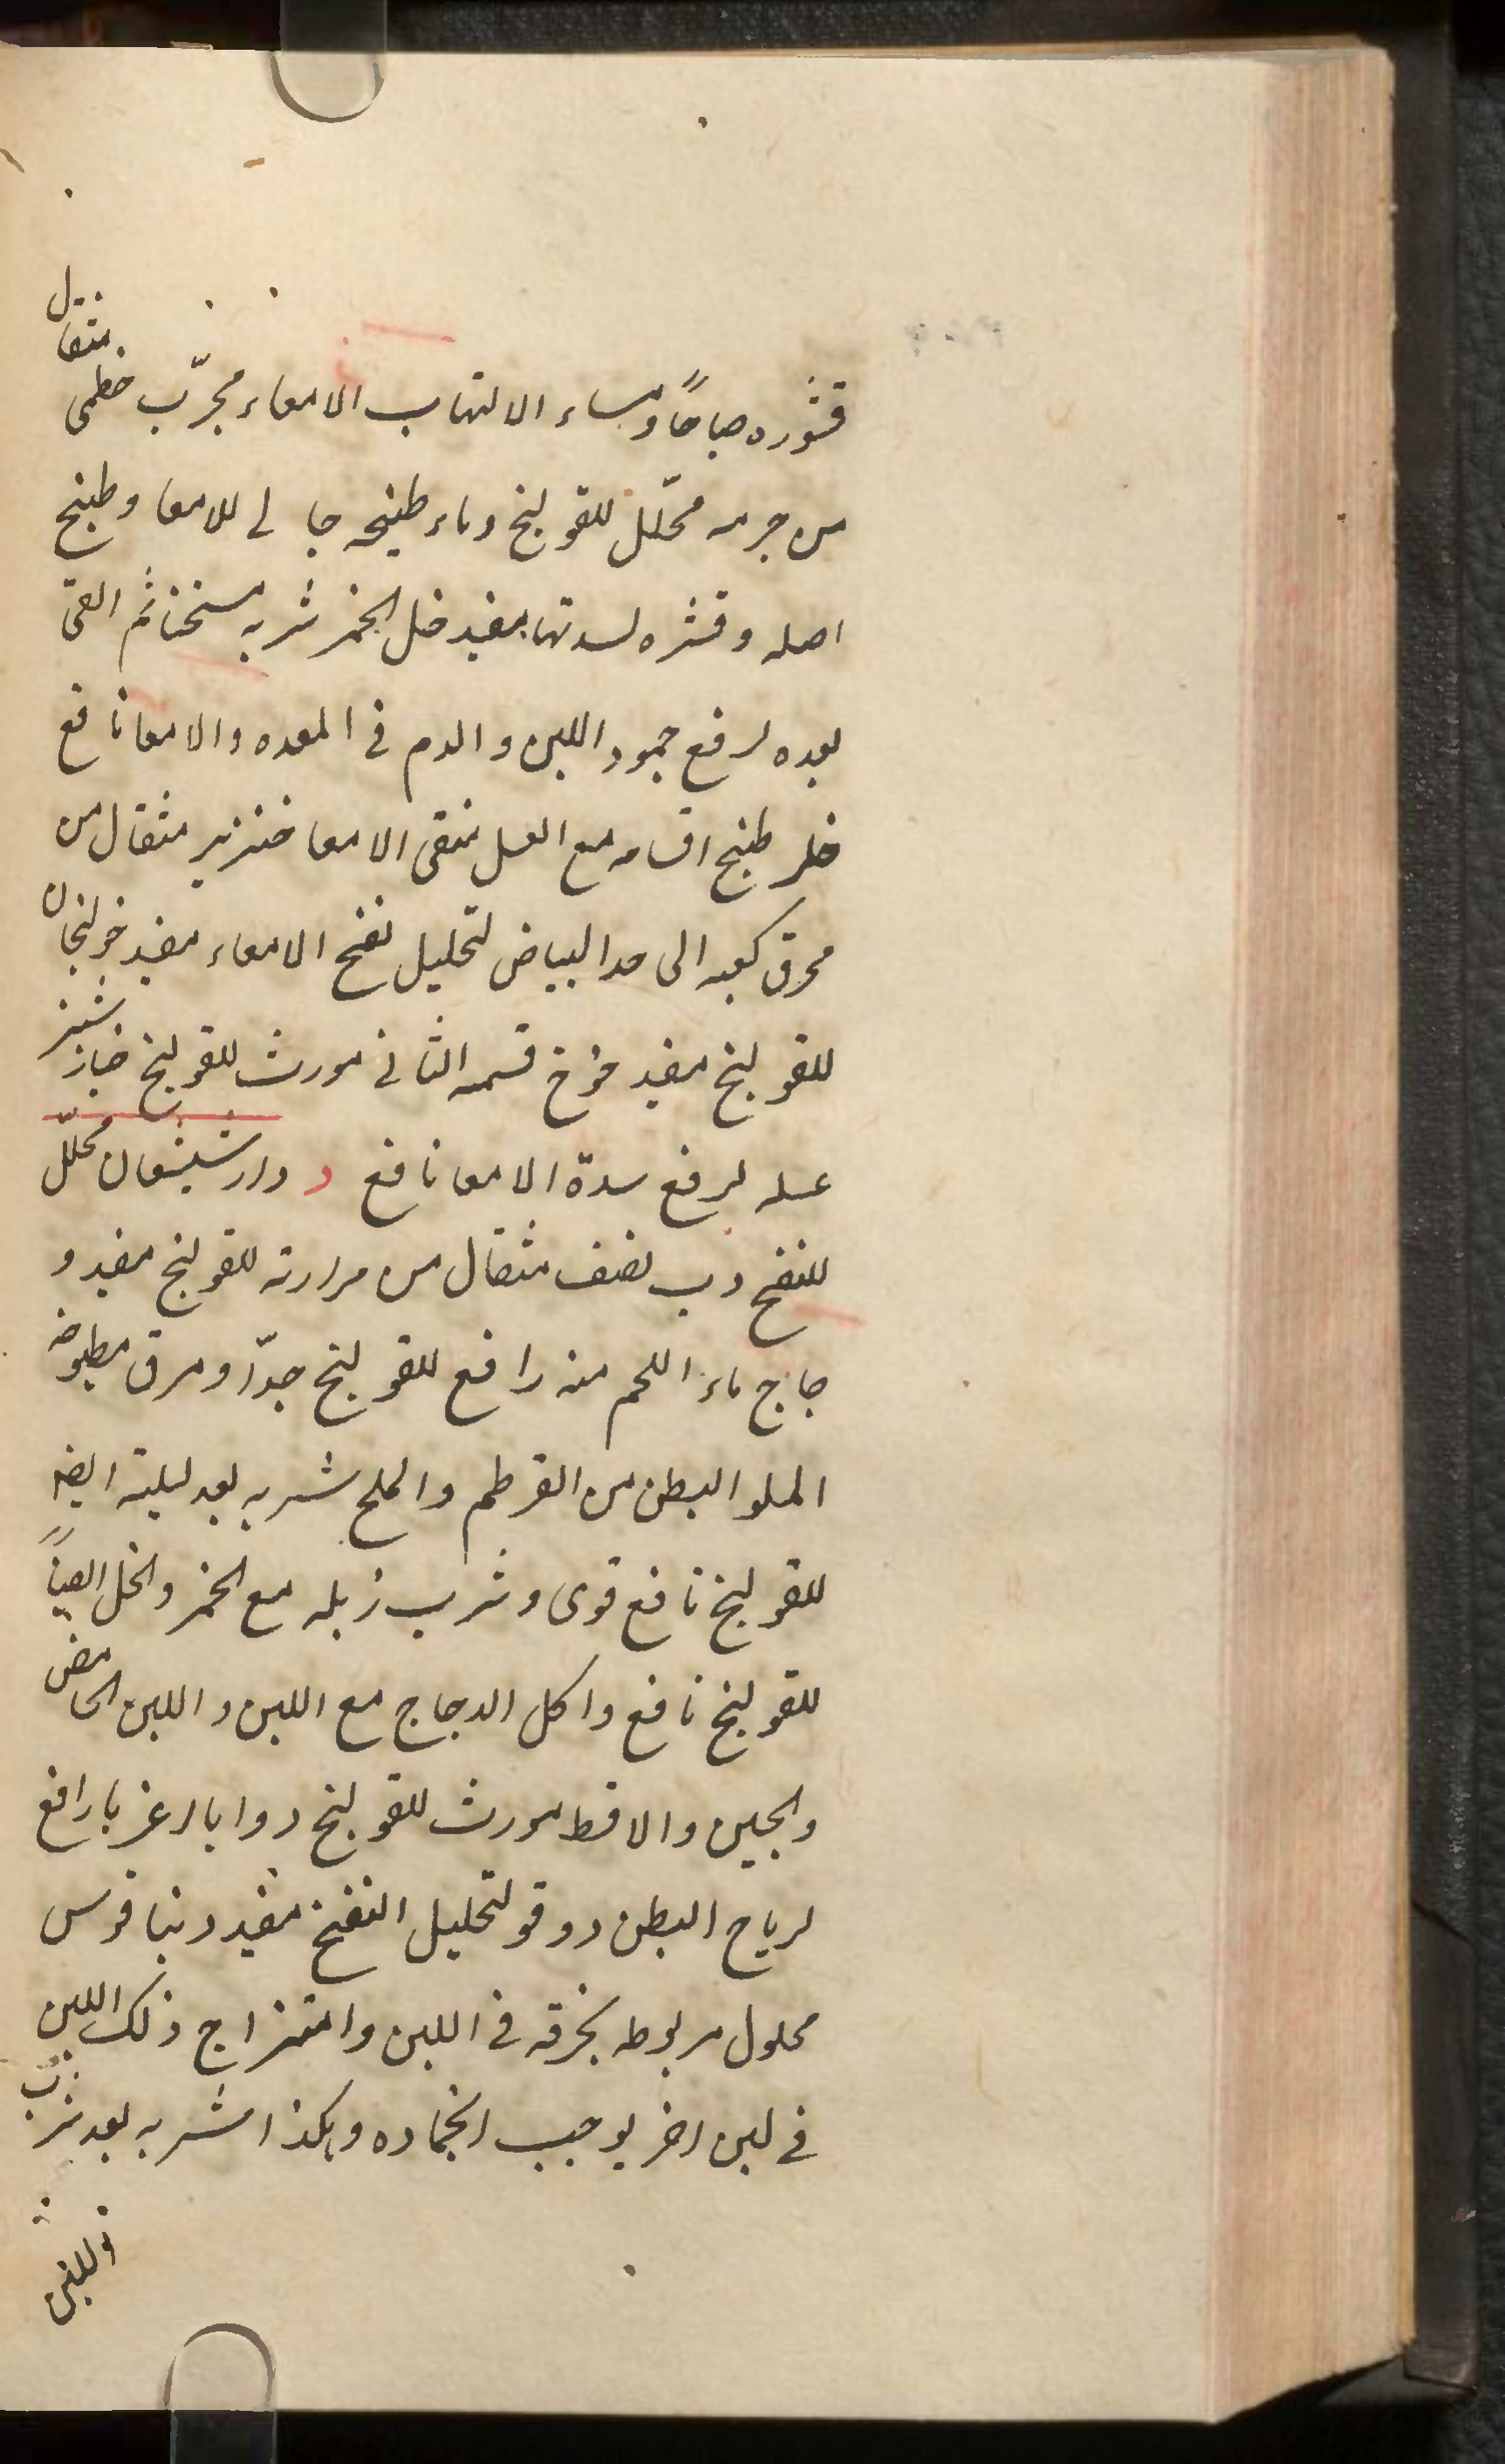 قشوره صباحًا ومساء الالتهاب الامعاء مجرّب خطمی مثقال
من جرمه محلّل للقولنج وماء طبیخه جالی للامعا وطبیخ
اصله وقشره لسدتها مفید خل الخمر شربه مسخنا ثم القی
بعده لرفع جمود اللبن والدم فی المعده والامعا نافع
خلر طبیخ اقسامه مع العسل منقی الامعا خنزیر مثقال من
محرق کعبه الی حد البیاض لتحلیل نفخ الامعاء مفید خولنجان
للقولنج مفید خوخ قسمه الثانی مورث للقولنج خیارشنبر
عسله لرفع سدة الامعا نافع د دارشیشعان محلّل
للنفخ دب نصف مثقال من مرارته للقولنج مفید د
جاج ماء اللحم منه رافع للقولنج جدّا ومرق مطبوخه
المملو البطن من القرطم والملح شربه بعد لیلته ایضا
للقولنج نافع قوی وشرب زبله مع الخمر والخل ایضاً
للقولنج نافع واکل الدجاج مع اللبن واللبن الحامض
والجبن والاقط مورث للقولنج دوا بالرغر بارافع
لریاح البطن دوقو لتحلیل النفخ مفید دینا قوس
محلول مربوطه بخرقه فی اللبن وامتزاج ذلک اللبن
فی لبن اخر یوجب انجماده وهکذا شربه بعد شرب
اللبن